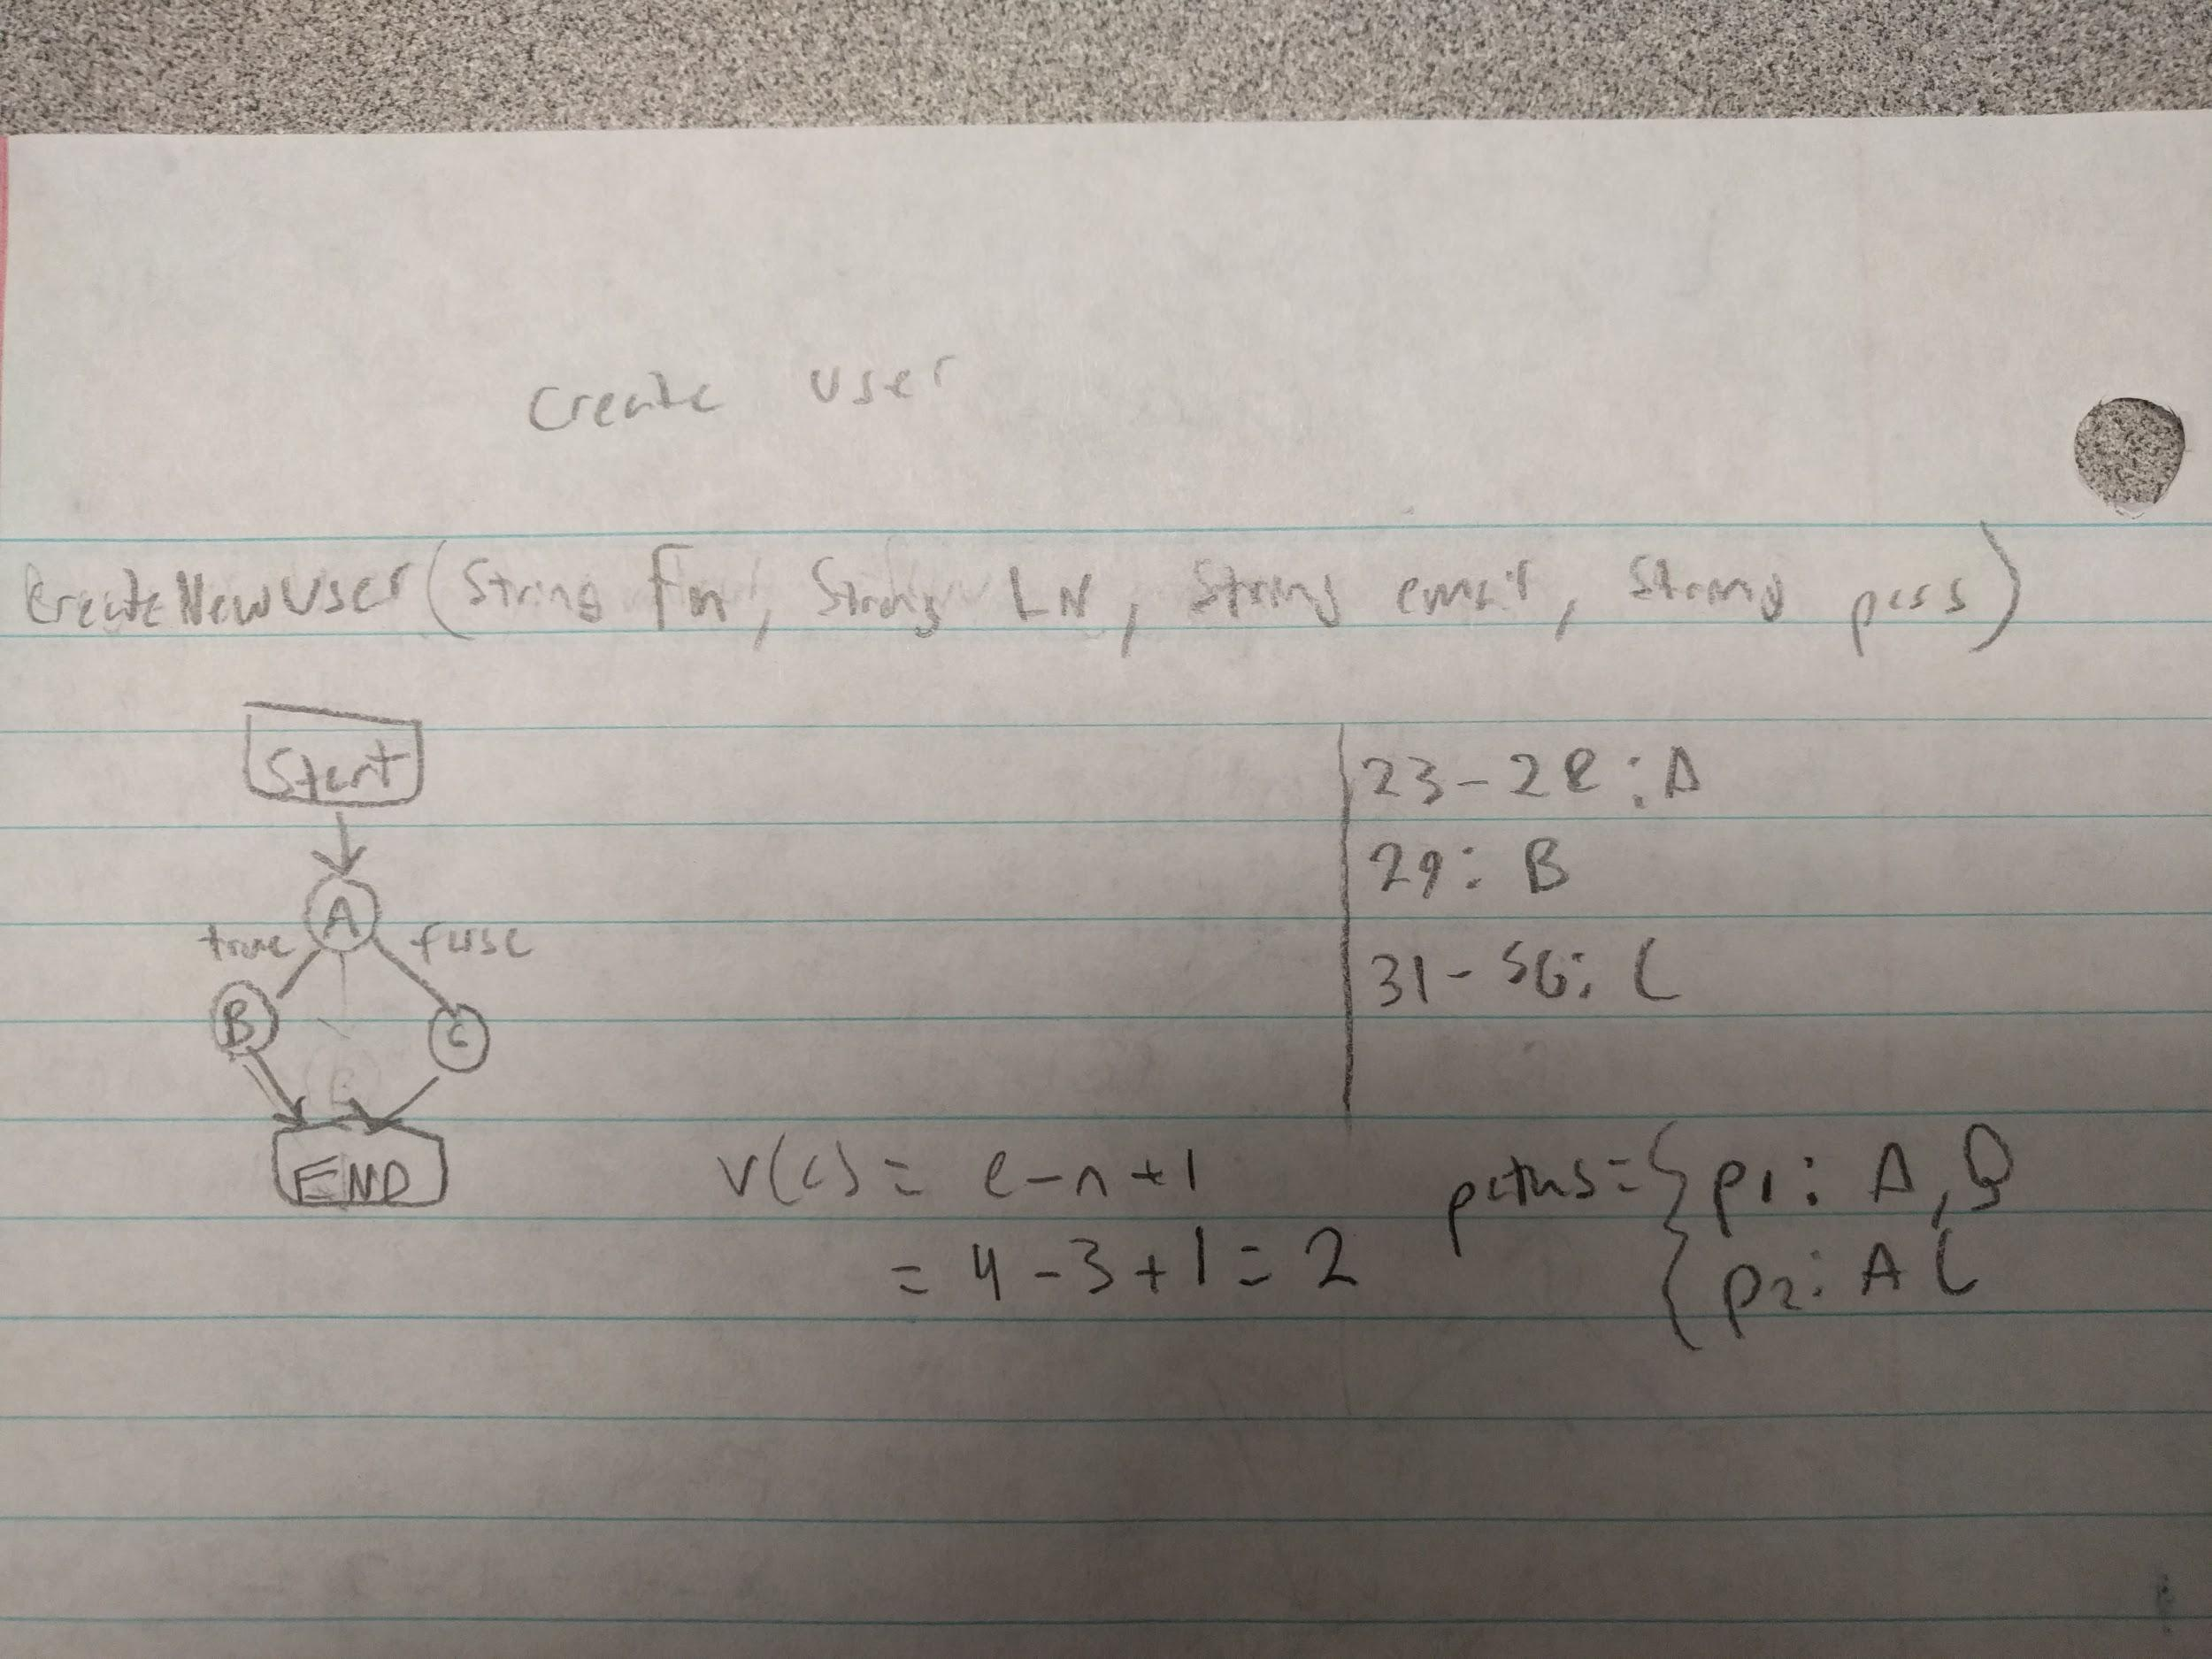 Create user
CreateNewUser(String Fn, String LN, String email, String pass)
Start
A
true false
B C
END
23-28: A
29: B
31-56: C
v(c) = e-n+1
= 4-3+1=2
paths = { p1: A, B
{ p2: A C